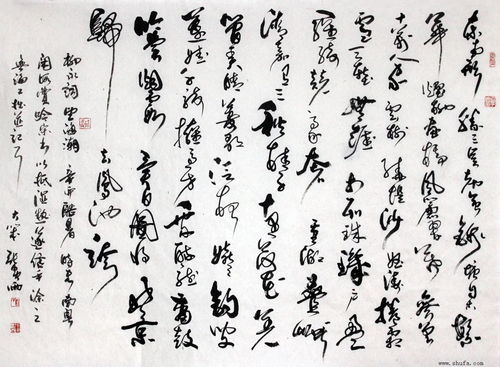 東南形勝三吴都會錢塘自古繁
華烟柳畫橋風簾翠幕參差
十萬人家雲樹繞堤沙怒濤捲霜
雪天塹無涯市列珠璣户盈
羅綺競豪奢重湖疊巘
清嘉有三秋桂子十里荷花羌
管弄晴菱歌泛夜嬉嬉釣叟
蓮娃千騎擁高牙乘醉聽簫鼓
吟賞烟霞異日圖將好景
歸去鳳池誇
柳永詞望海潮
www.shufa.com